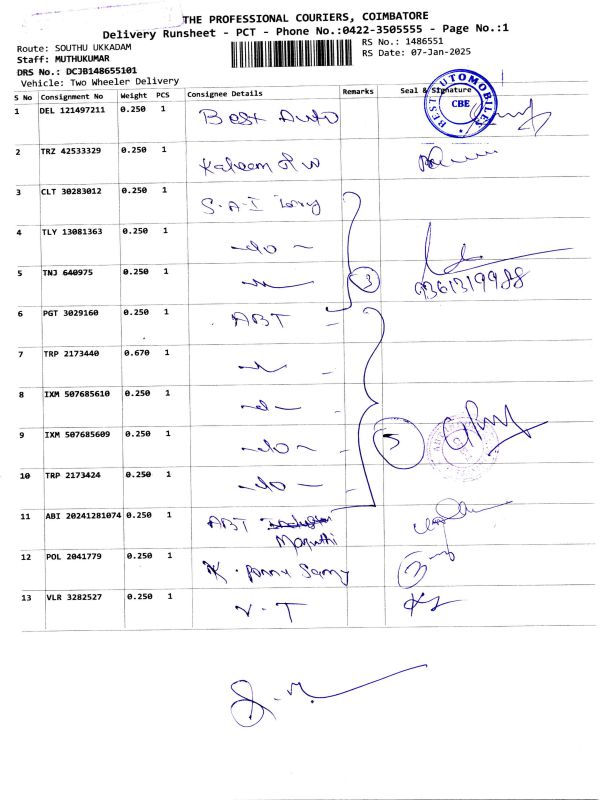 THE PROFESSIONAL COURIERS, COIMBATORE
Delivery Runsheet - PCT - Phone No.:0422-3505555 - Page No.:1
Route: SOUTHU UKKADAM
RS No.: 1486551
Staff: MUTHUKUMAR
RS Date: 07-Jan-2025
DRS No.: DCJB148655101
Vehicle: Two Wheeler Delivery
S No Consignment No Weight PCS Consignee Details Remarks Seal & Signature
1 DEL 121497211 0.250 1 Best Auto
BEST AUTOMOBILES CBE
2 TRZ 42533329 0.250 1 Kaleem
3 CLT 30283012 0.250 1 S.A.I
4 TLY 13081363 0.250 1 -do-
5 TNJ 640975 0.250 1 3 9361319988
6 PGT 3029160 0.250 1 ABT
7 TRP 2173440 0.670 1
8 IXM 507685610 0.250 1 -d-
9 IXM 507685609 0.250 1 -do- 5
10 TRP 2173424 0.250 1 -do-
11 ABI 20241281074 0.250 1 ABT
Maruthi
12 POL 2041779 0.250 1 K. Ponnu Samy
13 VLR 3282527 0.250 1 V.T